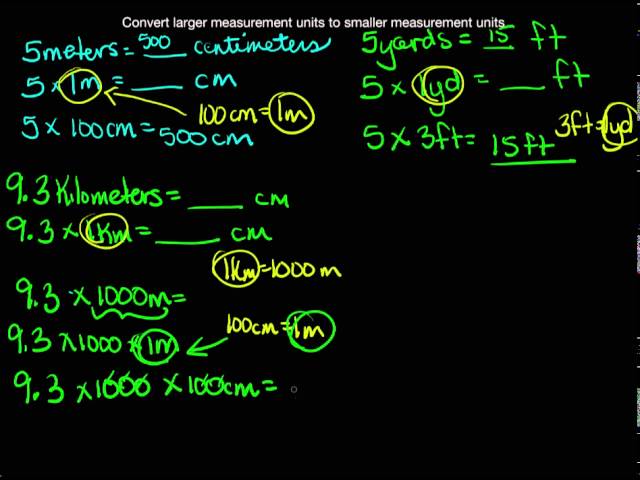 Convert larger measurement units to smaller measurement units
5 meters = 500 centimeters
5 × 1m = ___ cm
100cm = 1m
5 × 100cm = 500cm
5 yards = 15 ft
5 × 1yd = ___ ft
3ft = 1yd
5 × 3ft = 15ft
9.3 Kilometers = ___ cm
9.3 × 1Km = ___ cm
1Km = 1000m
9.3 × 1000m =
100cm = 1m
9.3 × 1000 × 1m
9.3 × 1000 × 100cm =